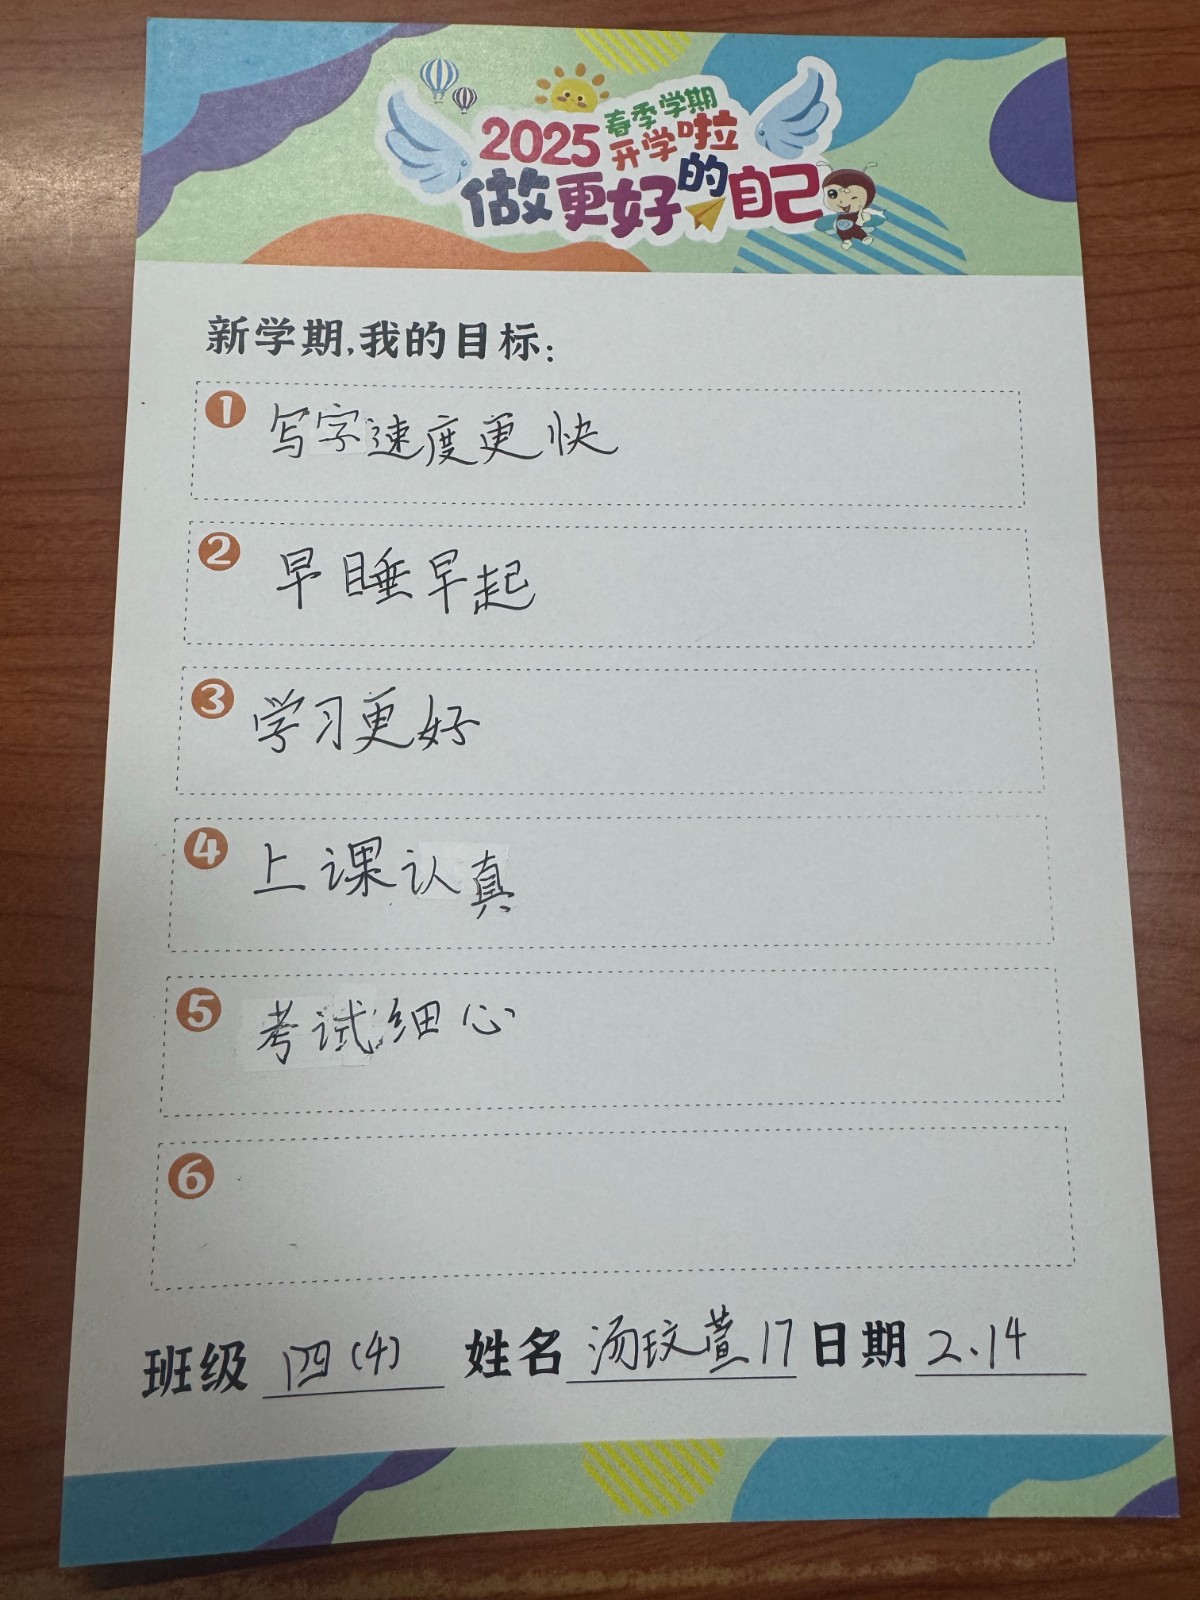 2025 春季学期
开学啦
做更好的自己
新学期,我的目标:
1 写字速度更快
2 早睡早起
3 学习更好
4 上课认真
5 考试细心
6
班级 四(4) 姓名 汤玟萱17 日期 2.14